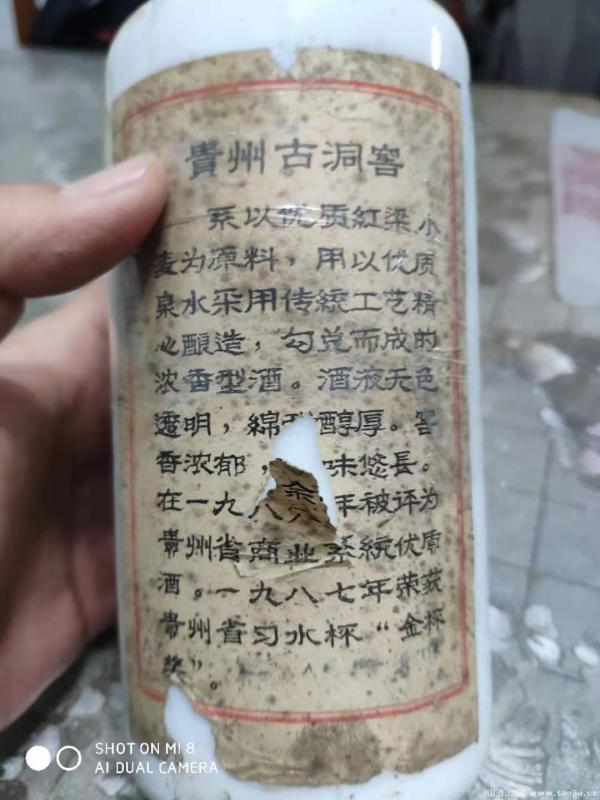 貴州古洞窖
系以优质紅梁小
麦为源料，用以优质
泉水采用传統工艺精
心酿造，勾兑而成的
浓香型酒。酒液无色
透明，綿甜醇厚。窖
香浓郁，味悠長。
在一九八八年被评为
貴州省商业系統优质
酒。一九八七年荣获
貴州省习水杯“金杯
奖”。
SHOT ON MI 8
AI DUAL CAMERA
www.taojiu.cc